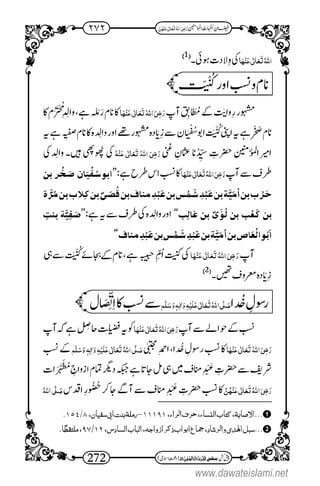 فیضانِ امہات المؤمنین رَضِیَ اللہُ تَعَالٰی عَنْہُنَّ ۲۷۲
اللہُ تَعَالٰی عَنْہَا کی ولادت ہوئی۔ (1)
نام و نسب اور کُنْیَت
مشہور روایت کے مُطَابِق آپ رَضِیَ اللہُ تَعَالٰی عَنْہَا کا نام رَمْلَہ ہے، والِدِ مُحْتَرَم کا
نام صَخْر ہے یہ اپنی کُنْیَت ابو سُفْیَان سے زیادہ مشہور تھے اور والدہ کا نام صفیہ ہے یہ
امیر المؤمنین حضرتِ سَیِّدُنا عثمانِ غنی رَضِیَ اللہُ تَعَالٰی عَنْہُ کی پھوپھی بھی ہیں۔ والِد کی
طرف سے آپ رَضِیَ اللہُ تَعَالٰی عَنْہَا کا نسب اس طرح ہے: ”ابو سُفْیَان صَخْر بن
حَرْب بن اُمَیَّہ بن عَبْدِ شَمْس بن عَبْدِ مناف بن قُصَیّ بن کِلَاب بن مُرَّہ
بن کَعْب بن لُؤَیّ بن غَالِب“ اور والدہ کی طرف سے یہ ہے: ”صَفِیَّہ بنتِ
اَبُو الْعَاص بن اُمَیَّہ بن عَبْدِ شَمْس بن عَبْدِ مناف“
آپ رَضِیَ اللہُ تَعَالٰی عَنْہَا کی کُنْیَت اُمِّ حبیبہ ہے، نام کے بجائے کُنْیَت سے ہی
زیادہ معروف تھیں۔ (2)
رسولِ خُدا صَلَّی اللہُ تَعَالٰی عَلَیْہِ وَاٰلِہٖ وَسَلَّم سے نسب کا اِتِّصَال
نسب کے حوالے سے آپ رَضِیَ اللہُ تَعَالٰی عَنْہَا کو یہ فضیلت حاصل ہے کہ آپ
رَضِیَ اللہُ تَعَالٰی عَنْہَا کا نسب رسولِ خُدا، احمدِ مجتبیٰ صَلَّی اللہُ تَعَالٰی عَلَیْہِ وَاٰلِہٖ وَسَلَّم کے نسب
شریف سے حضرتِ عَبْدِ مناف میں ہی مل جاتا ہے جبکہ دیگر تمام ازواجِ مُطَہَّرَات
رَضِیَ اللہُ تَعَالٰی عَنْہُنَّ کا نسب حضرتِ عَبْدِ مناف سے آگے جا کر حُضُورِ اقدس صَلَّی اللہُ
1... الاصابة، کتاب النساء، حرف الراء، ۱۱۱۹۱-رملة بنت ابی سفیان، ۸/ ۱۵٤.
2... سبل الھدیٰ والرشاد، جماع ابواب ذکر ازواجہ، الباب السادس، ۱۲/ ۹۷، ملتقطًا.
272
www.dawateislami.net